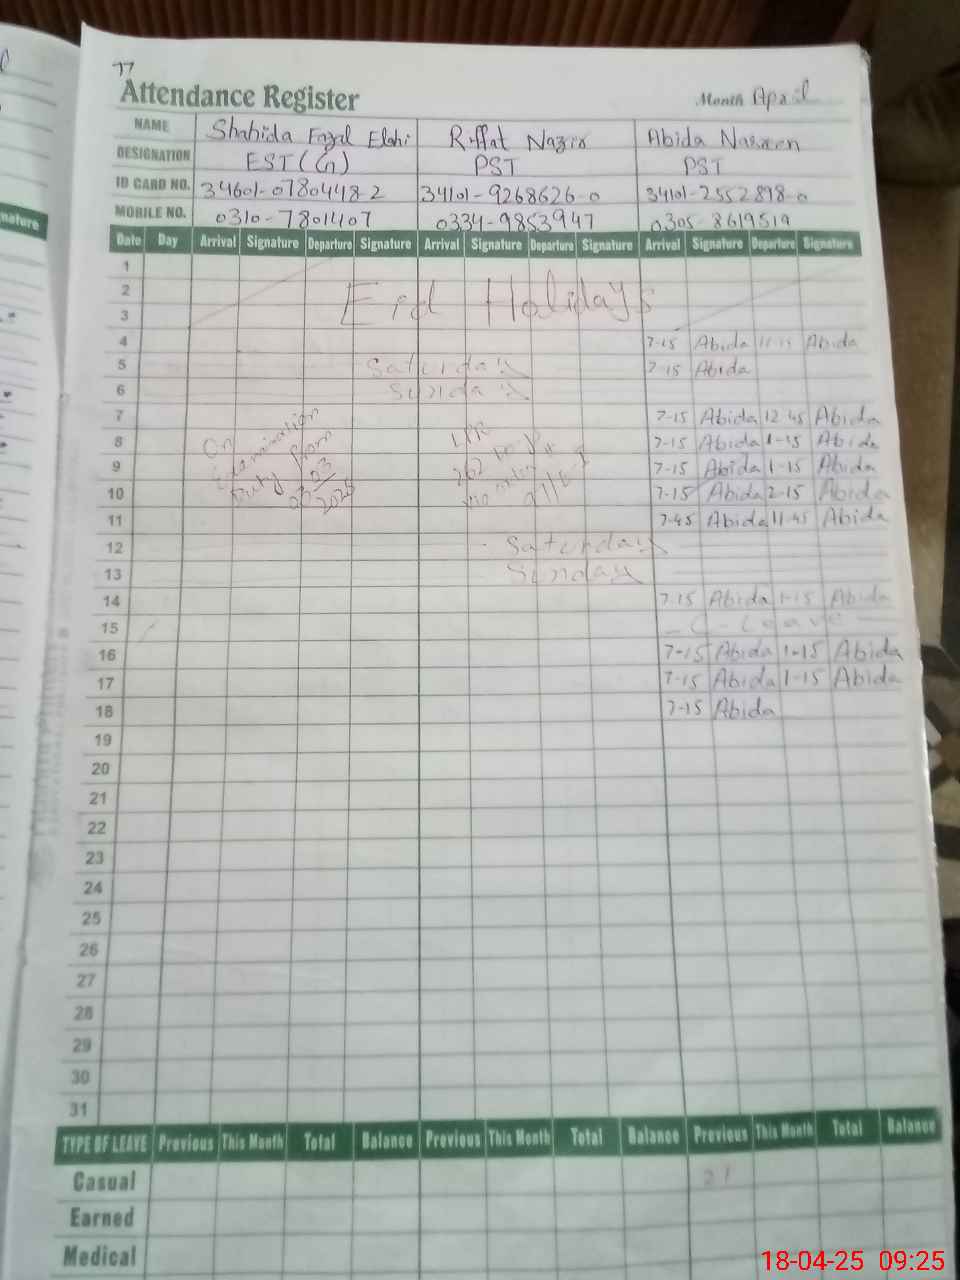 77
Attendance Register Month April
NAME Shahida Fazal Elahi Riffat Nazir Abida Nasreen
DESIGNATION EST(G) PST PST
ID CARD NO. 34601-0780448-2 34101-9268626-0 34101-2552898-0
MOBILE NO. 0310-7801407 0334-9853947 0305-8619519
nature
Date Day Arrival Signature Departure Signature Arrival Signature Departure Signature Arrival Signature Departure Signature
1
2 Eid Holidays
3
4 7-15 Abida 11-15 Abida
5 Saturday 7-15 Abida
6 Sunday
7 7-15 Abida 12-45 Abida
8 7-15 Abida 1-15 Abida
9 7-15 Abida 1-15 Abida
10 7-15 Abida 2-15 Abida
11 7-45 Abida 11-45 Abida
On
Examination
Duty from
03
2025
LPR
12 Saturday
13 Sunday
14 7-15 Abida 1-15 Abida
15 C-Leave
16 7-15 Abida 1-15 Abida
17 7-15 Abida 1-15 Abida
18 7-15 Abida
19
20
21
22
23
24
25
26
27
28
29
30
31
TYPE OF LEAVE Previous This Month Total Balance Previous This Month Total Balance Previous This Month Total Balance
Casual
Earned
Medical
18-04-25 09:25